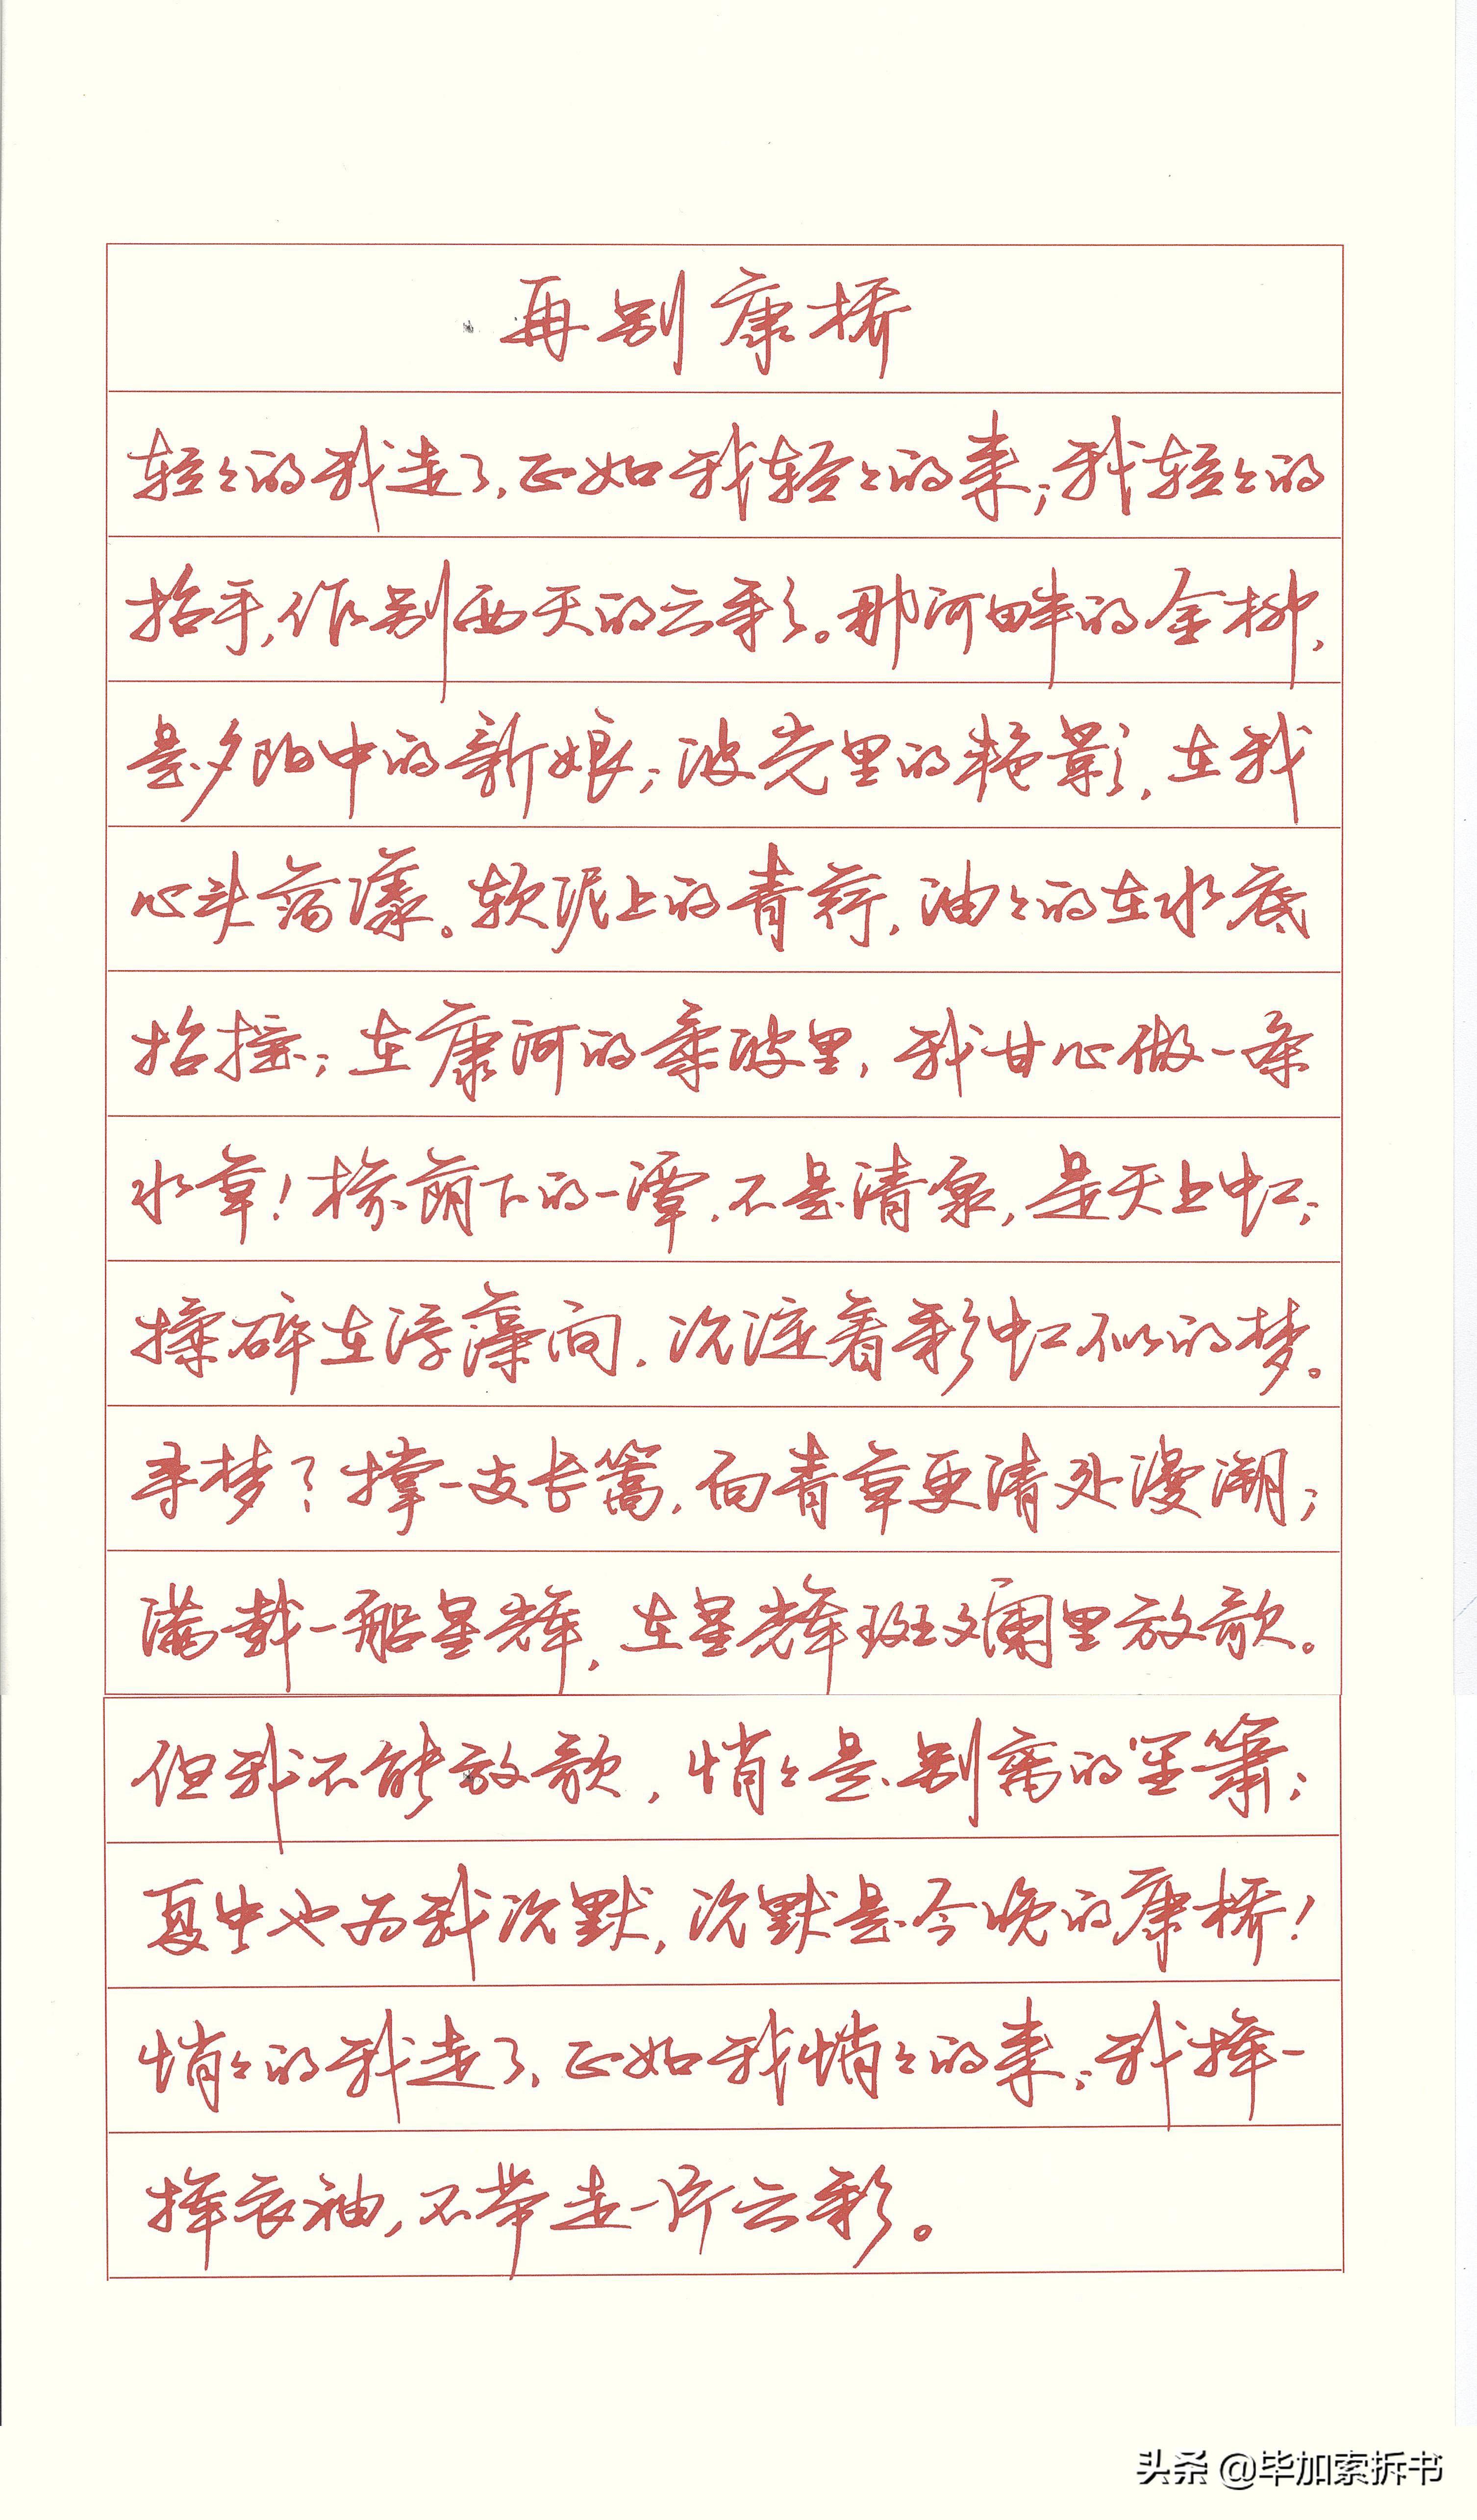 再别康桥
轻々的我走了,正如我轻々的来;我轻々的
招手,作别西天的云彩。那河畔的金柳,
是夕阳中的新娘;波光里的艳影,在我
心头荡漾。软泥上的青荇,油々的在水底
招摇;在康河的柔波里,我甘心做一条
水草!榆荫下的一潭,不是清泉,是天上虹;
揉碎在浮藻间,沉淀着彩虹似的梦。
寻梦?撑一支长篙,向青草更清处漫溯;
满载一船星辉,在星辉斑斓里放歌。
但我不能放歌,悄々是别离的笙箫;
夏虫也为我沉默,沉默是今晚的康桥!
悄々的我走了,正如我悄々的来;我挥一
挥衣袖,不带走一片云彩。
头条 @毕加索拆书